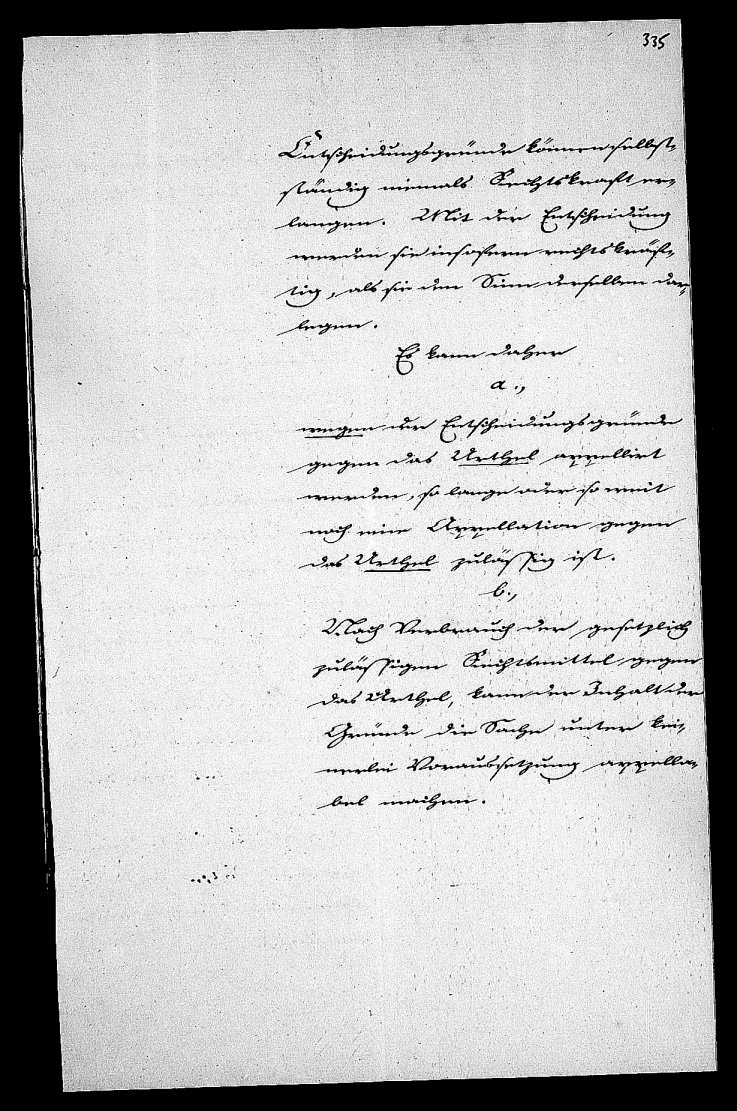 335
Entscheidungsgründe können selbst-
ständig niemals Rechtskraft er-
langen. Mit der Entscheidung
werden sie insofern rechtskräf-
tig, als sie den Sinn derselben dar-
legen.
Es kann daher
a.,
wegen der Entscheidungsgründe
gegen das Urthel appellirt
werden, so lange oder so weit
noch eine Appellation gegen
das Urthel zulässig ist.
b.,
Nach Verbrauch der gesetzlich
zulässigen Rechtsmittel gegen
das Urthel, kann der Inhalt der
Gründe die Sache unter kei-
nerlei Voraussetzung appella-
bel machen.